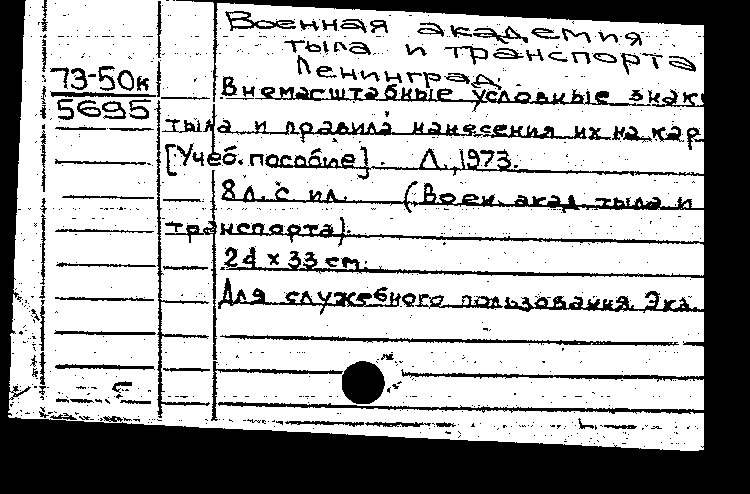 Военная академия
тыла и транспорта
Ленинград.
73-50к
5695
Внемасштабные условные знаки
тыла и правила нанесения их на кар
[Учеб. пособие]. Л., 1973.
8 л. с ил. (Воен. акад. тыла и
транспорта).
24 x 33 см.
Для служебного пользования. Экз.